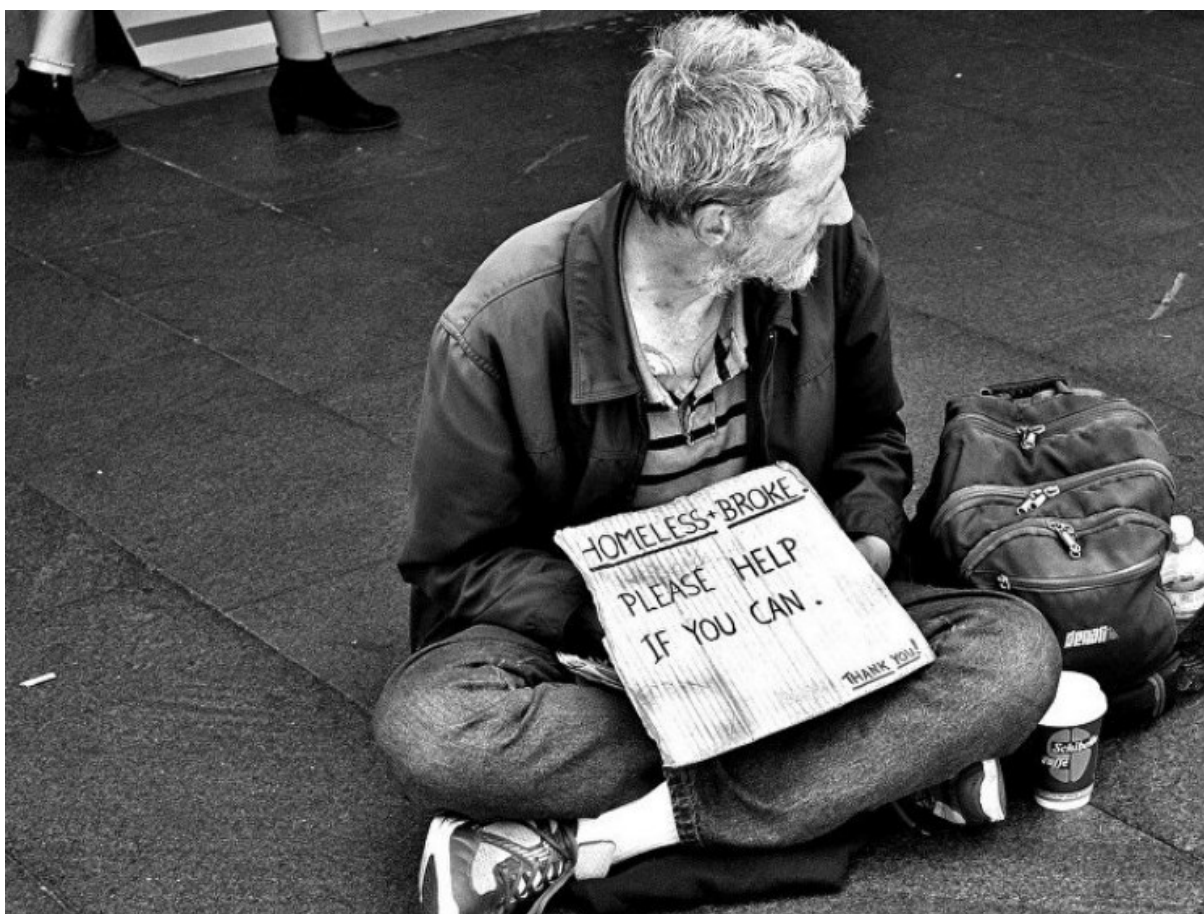 HOMELESS + BROKE.
PLEASE HELP
IF YOU CAN.
THANK YOU!
denali
caffe